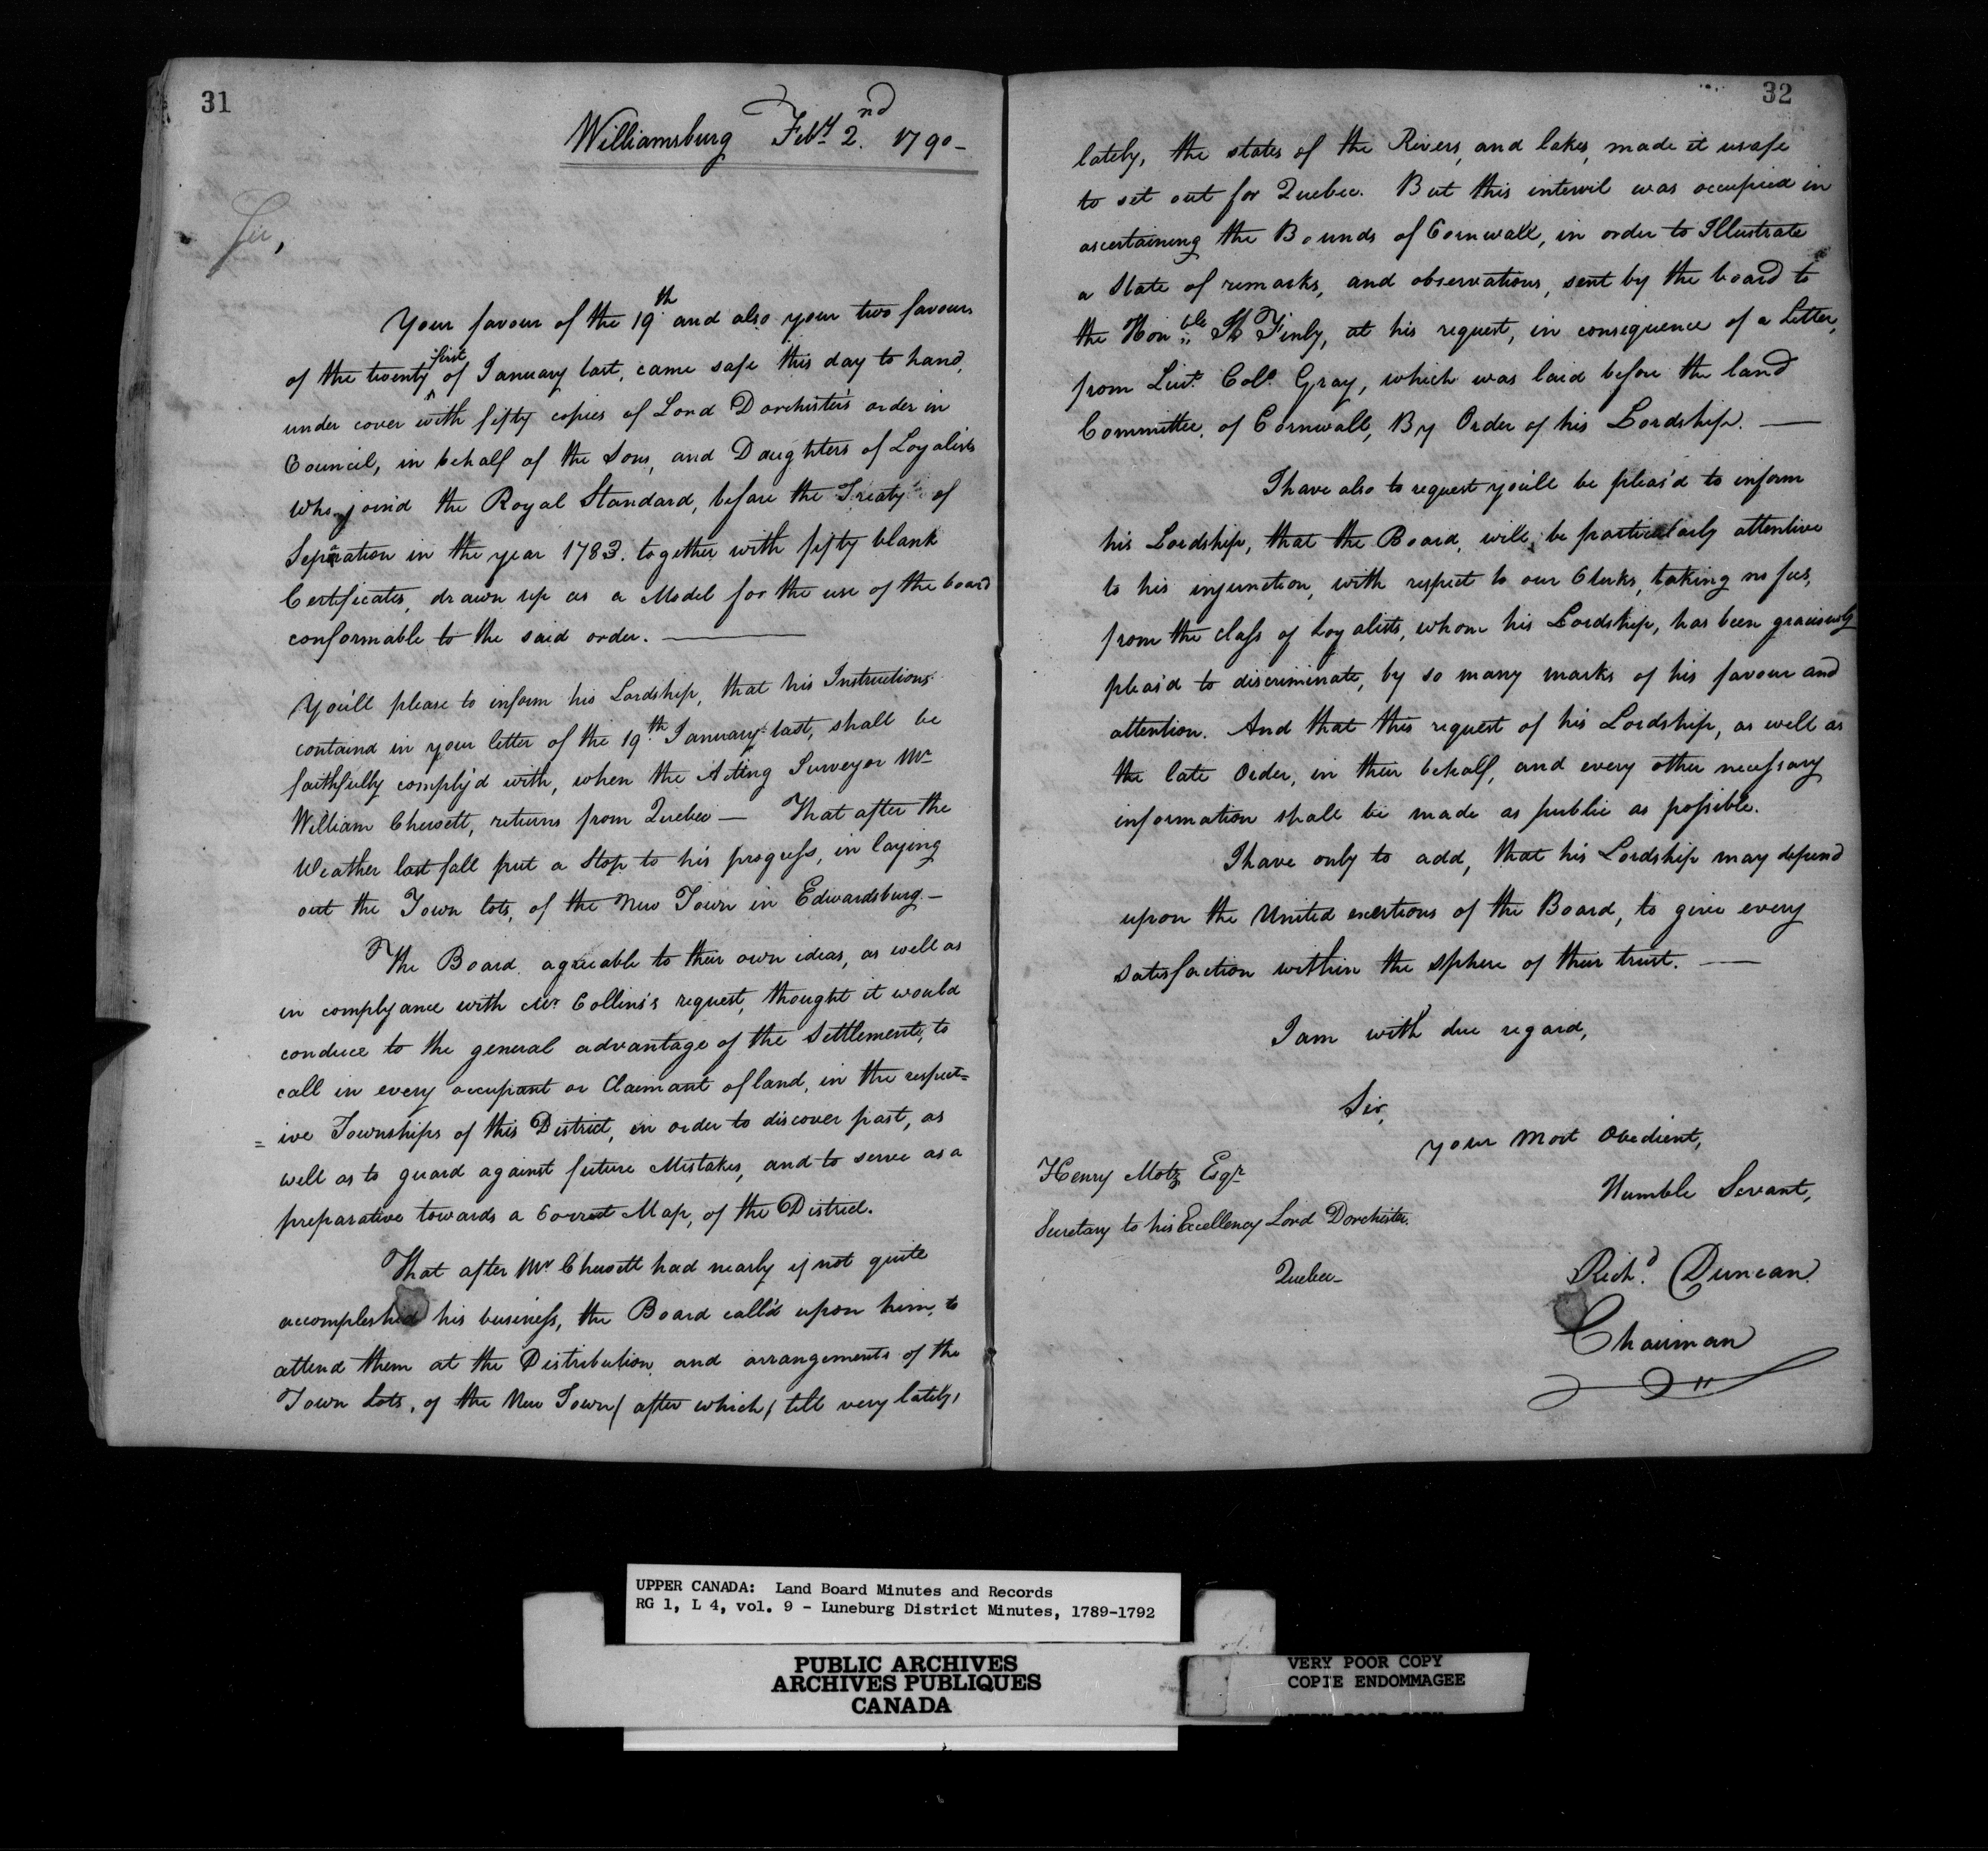 31
Williamsburg Feby 2nd 1790-
Sir,
Your favour of the 19th and also your two favours
of the twenty first of January last, came safe this day to hand,
under cover with fifty copies of Lord Dorchister's order in
Council, in behalf of the Sons, and Daughters of Loyalists
who joind the Royal Standard, before the Treaty of
Seperation in the year 1783. together with fifty blank
Certificates, drawn up as a Model for the use of the board
conformable to the said order. —
You'll please to inform his Lordship, that his Instructions
containd in your letter of the 19th January last, shall be
faithfully comply'd with, when the Acting Surveyor Mr
William Chewett, returns from Quebec — That after the
Weather last fall put a Stop to his progress, in laying
out the Town lots, of the New Town in Edwardsburg.-
The Board agreeable to their own ideas, as well as
in complyance with Mr Collins's request, thought it would
conduce to the general advantage of the Settlements, to
call in every occupant or Claimant of land, in the respect=
= ive Townships of this District, in order to discover past, as
well as to guard against future Mistakes, and to serve as a
preparative towards a Correct Map, of the District.
That after Mr Chewett had nearly if not quite
accomplished his business, the Board call'd upon him, to
attend them at the Distribution and arrangements of the
Town Lots, of the New Town (after which) till very lately,
32
lately, the states of the Rivers, and lakes, made it usafe
to set out for Quebec. But this intervil was occupied in
ascertaining the Bounds of Cornwall, in order to Illustrate
a State of remarks, and observations, sent by the board to
the Honble Finly, at his request, in consequence of a Letter,
from Lieut. Colo. Gray, which was laid before the land
Committee, of Cornwall, By Order of his Lordship. —
I have also to request you'll be pleas'd to inform
his Lordship, that the Board, will be particularly attentive
to his injunction, with respect to our Clerks, taking no fees,
from the class of Loyalists, whom his Lordship, has been graciously
pleas'd to discriminate, by so many marks of his favour and
attention. And that this request of his Lordship, as well as
the late Order, in their behalf, and every other necessary
information shall be made as public as possible.
I have only to add, that his Lordship may depend
upon the United exertions of the Board, to give every
satisfaction within the sphere of their trust. —
I am with due regard,
Sir,
your most Obedient,
Humble Servant,
Henry Motz Esqr
Secretary to his Excellency Lord Dorchester.
Quebec-
Richd. Duncan.
Chairman
UPPER CANADA: Land Board Minutes and Records
RG 1, L 4, vol. 9 - Luneburg District Minutes, 1789-1792
PUBLIC ARCHIVES
ARCHIVES PUBLIQUES
CANADA
VERY POOR COPY
COPIE ENDOMMAGEE